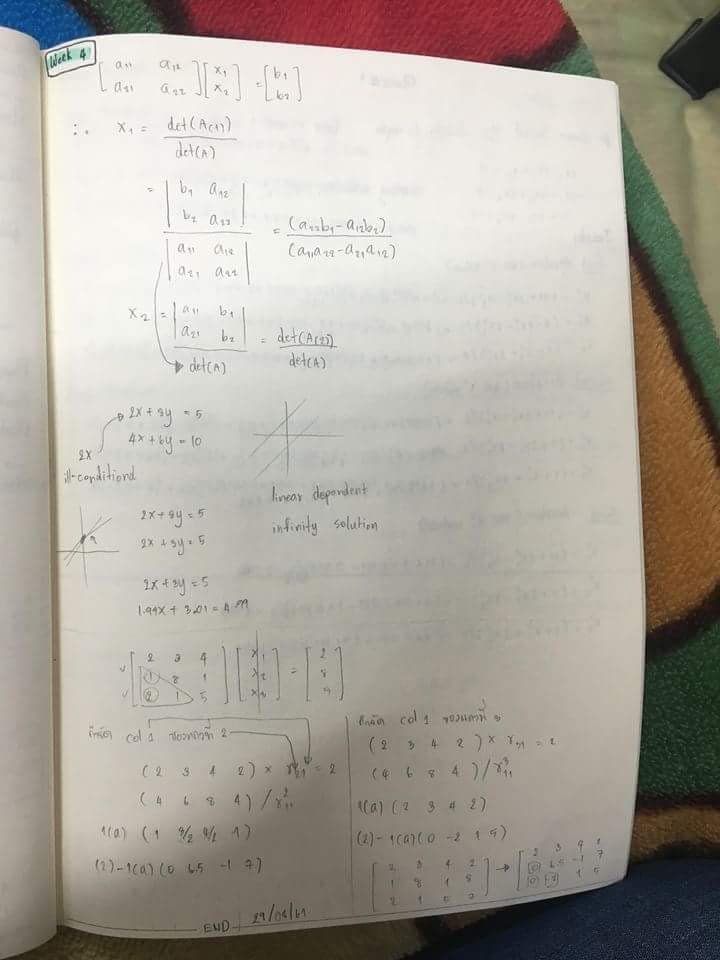 Week 4
[ a11 a12 ] [ x1 ] = [ b1 ]
[ a21 a22 ] [ x2 ] [ b2 ]
∴ x1 = det(A(1)) / det(A)
= | b1 a12 |
| b2 a22 |
= (a22b1 - a12b2) / (a11a22 - a21a12)
| a11 a12 |
| a21 a22 |
x2 = | a11 b1 |
| a21 b2 |
= det(A(2)) / det(A)
det(A)
2x + 3y = 5
4x + 6y = 10
2x
ill-conditiond
linear dependent
infinity solution
2x + 3y = 5
2x + 3y = 5
2x + 3y = 5
1.99x + 3.01 = 4.99
[ 2 3 4 ] [ x1 ] = [ 2 ]
[ 1 8 1 ] [ x2 ] [ 8 ]
[ 2 1 5 ] [ x3 ]
กำจัด col 1 ของแถวที่ 2
(2 3 4 2) × r21 = 2
(4 6 8 4) / r11
1(a) (1 3/2 4/2 1)
(2)-1(a) (0 6.5 -1 7)
กำจัด col 1 ของแถวที่ 3
(2 3 4 2) × r31 = 2
(4 6 8 4) / r11
1(a) (2 3 4 2)
(2)-1(a) (0 -2 1 5)
[ 2 3 4 2 ] → [ 2 3 4 2 ]
[ 1 8 1 8 ] [ 0 6.5 -1 7 ]
[ 2 1 5 ] [ 0 -2 1 5 ]
END 29/08/61